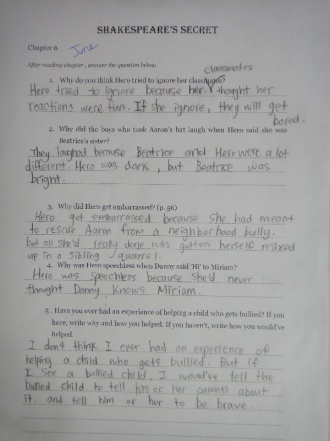 SHAKESPEARE'S SECRET
Chapter 6
June
After reading chapter, answer the question below.
classmates
1. Why do you think Hero tried to ignore her classmates?
Hero tried to ignore because her thought her
reactions were fun. If she ignore, they will get
bored.
2. Why did the boys who took Aaron's hat laugh when Hero said she was
Beatrice's sister?
They laughed because Beatrice and Hero were a lot
different. Hero was dark, but Beatrice was
bright.
3. Why did Hero got embarrassed? (p. 96)
Hero got embarrassed because she had meant
to rescue Aaron from a neighborhood bully.
but all she'd really done was gotten herself mixed
up in a sibling quarrel.
4. Why was Hero speechless when Danny said 'Hi' to Miriam?
Hero was speechless because she'd never
thought Danny knows Miriam.
5. Have you ever had an experience of helping a child who gets bullied? If you
have, write why and how you helped. If you haven't, write how you would've
helped.
I don't think I ever had an experience of
helping a child who gets bullied. But if
I see a bullied child, I would've tell the
bullied child to tell his or her parents about
it. and tell him or her to be brave.